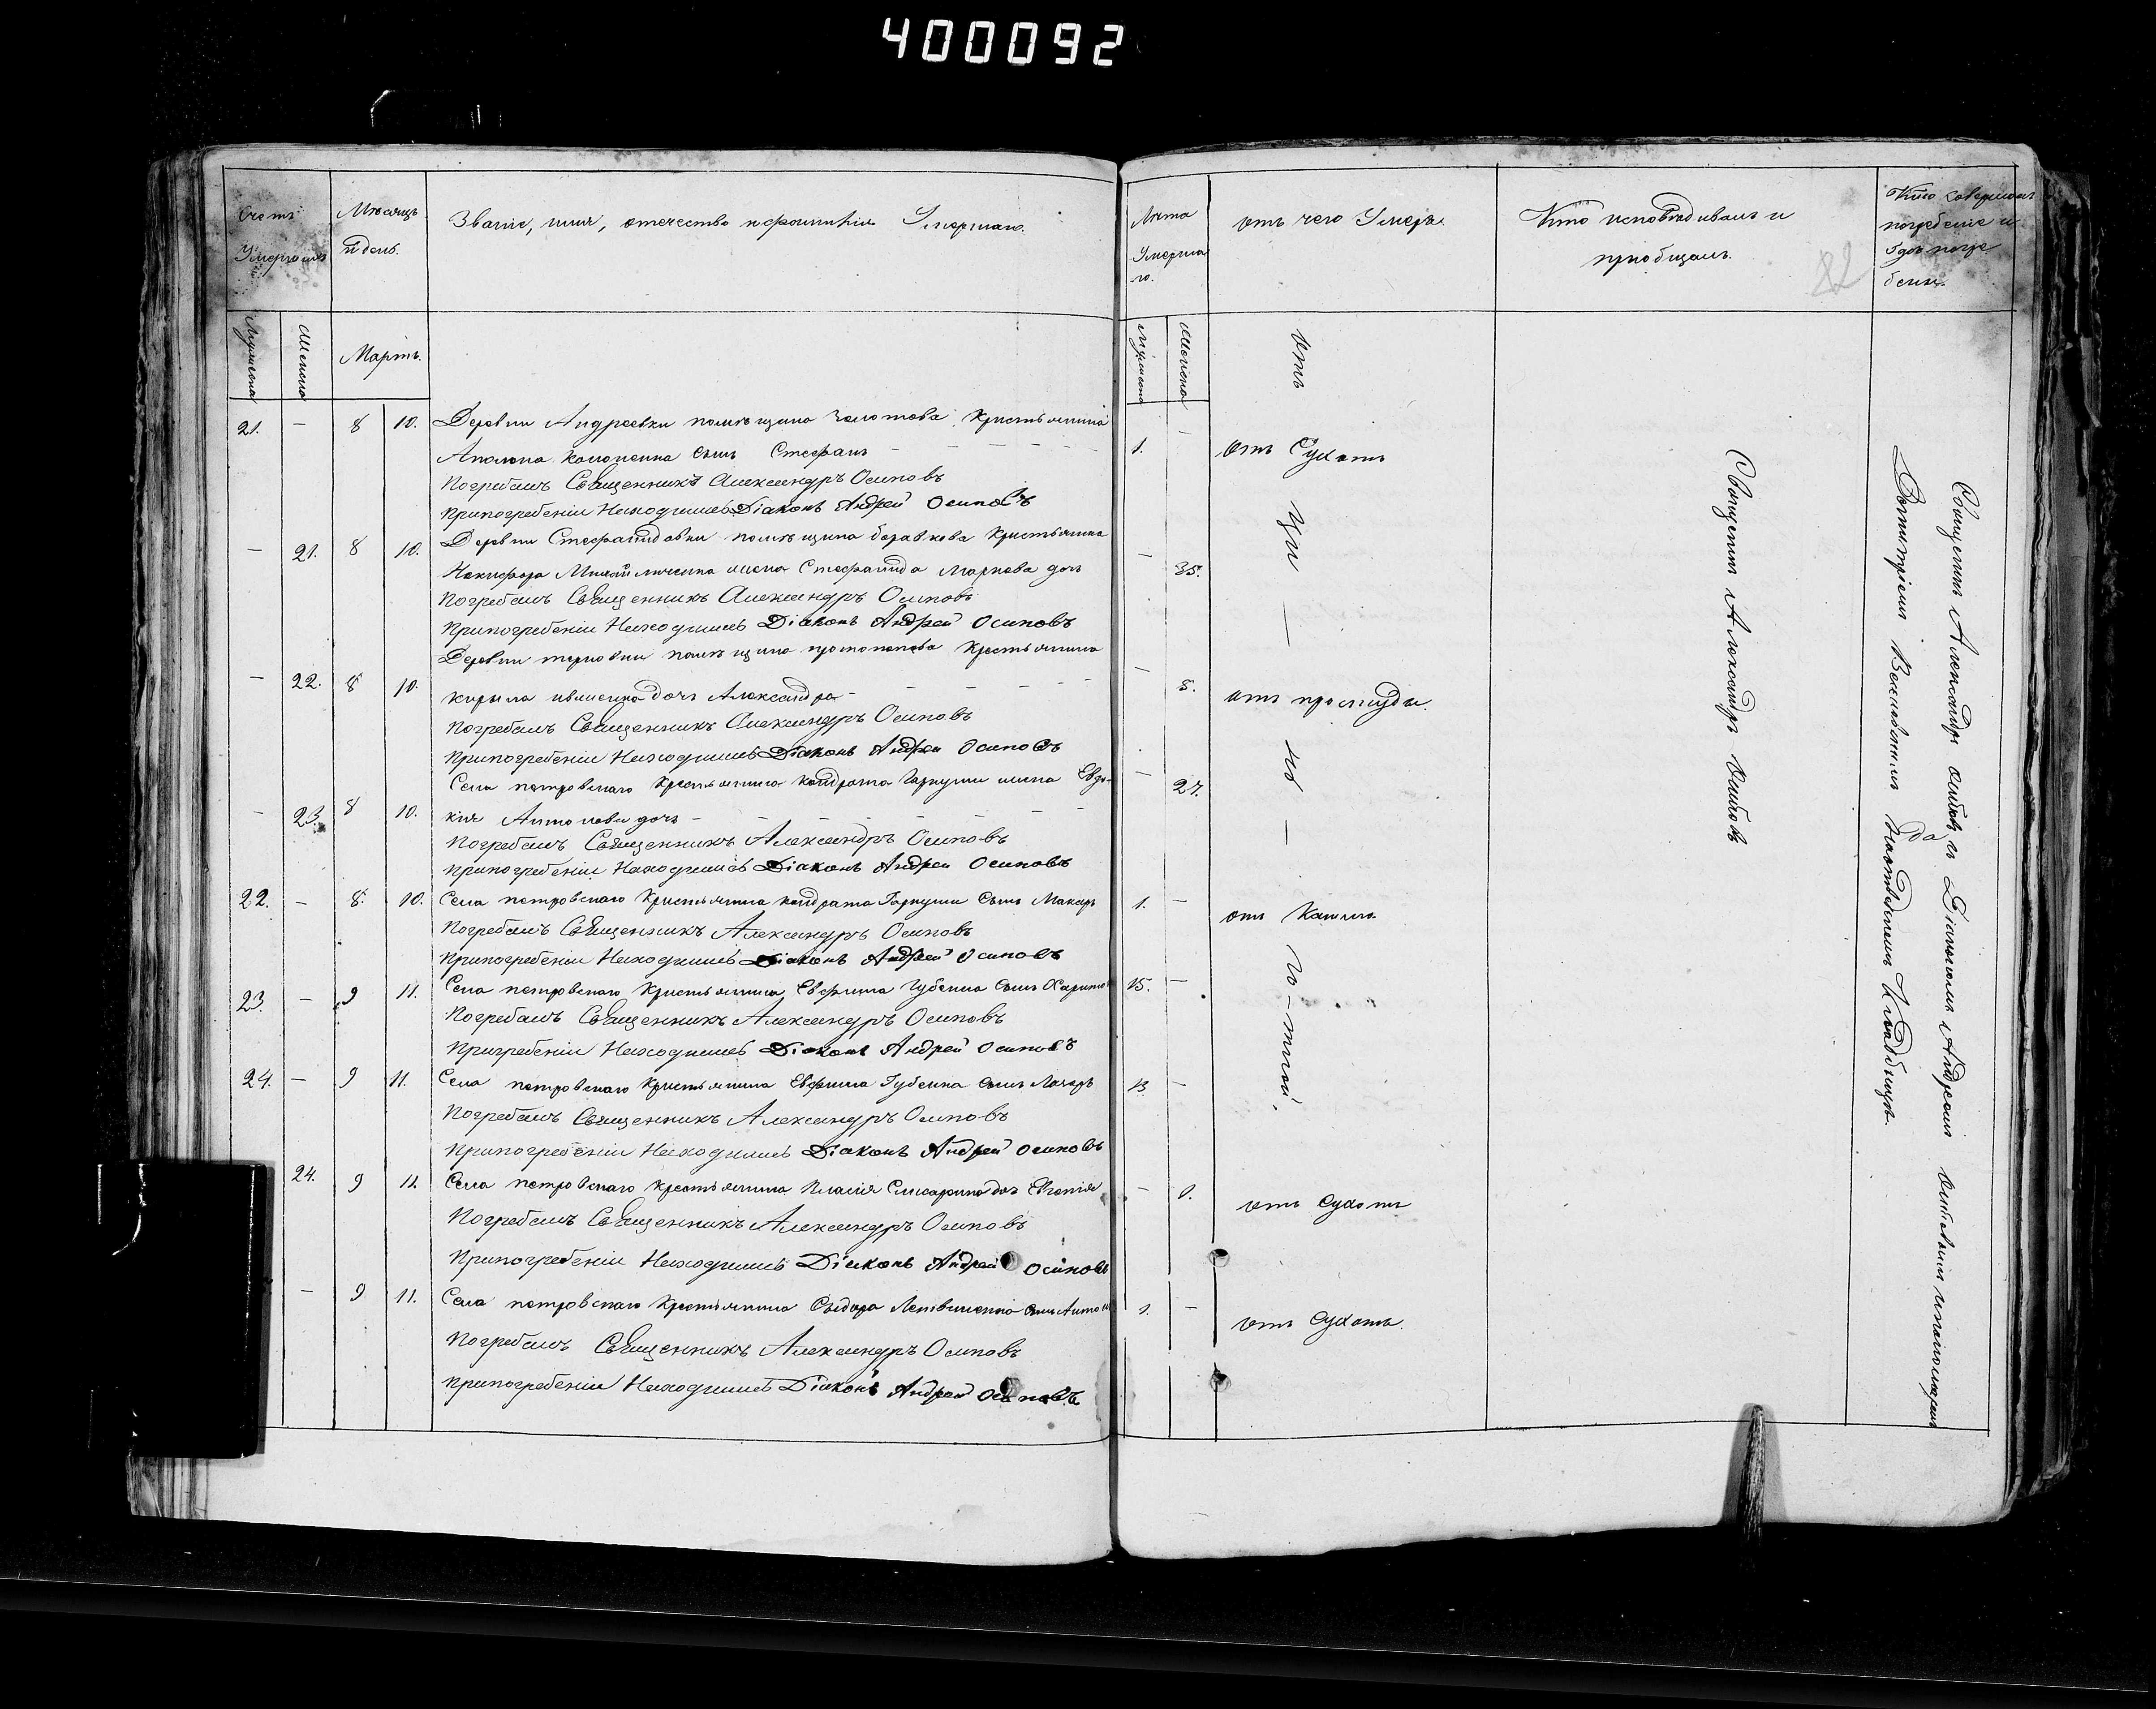 400092
Счетъ Умершихъ
Мѣсяцъ и день.
Званіе, имя, отечество и фамилія Умершаго.
Лѣта Умершаго.
отъ чего Умеръ.
Кто исповѣдивалъ и пріобщалъ.
Кто совершалъ погребеніе и гдѣ погребены.
82
Мужеска
Женска
Мартъ.
Мужеска
Женска
21. — 8 10. Деревни Андреевки помѣщика Золотова Крестьянина
Сынъ Стефанъ — 1. — отъ Сухотъ
Погребалъ Священникъ Александръ Осиповъ
Припогребеніи Находился Діаконъ Андрей Осиповъ
— 21. 8 10. Деревни Стефанидовки помѣщика Крестьянина
Никифора жена Стефанида Маркова дочь — 35.
Погребалъ Священникъ Александръ Осиповъ
Припогребеніи Находился Діаконъ Андрей Осиповъ
Деревни терновки помѣщика протопопова Крестьянина
— 22. 8 10. кирыла ившенка дочь Александра — 8. отъ простуды.
Погребалъ Священникъ Александръ Осиповъ
Припогребеніи Находился Діаконъ Андрей Осиповъ
Села петровскаго Крестьянина кондрата Гаркуши жена Евдо-
— 23. 8 10. кия Антонова дочь — 27.
Погребалъ Священникъ Александръ Осиповъ
Припогребеніи Находился Діаконъ Андрей Осиповъ
22. — 8. 10. Села петровскаго Крестьянина кондрата Гаркуши Сынъ Макаръ 1. — отъ Кашля
Погребалъ Священникъ Александръ Осиповъ
Припогребеніи Находился Діаконъ Андрей Осиповъ
23. — 9 11. Села петровскаго Крестьянина Евфима Губенка Сынъ Харитонъ 15. —
Погребалъ Священникъ Александръ Осиповъ
Пригребеніи Находился Діаконъ Андрей Осиповъ
24. — 9 11. Села петровскаго Крестьянина Евфима Губенка Сынъ Лазарь 13. —
Погребалъ Священникъ Александръ Осиповъ
Припогребеніи Находился Діаконъ Андрей Осиповъ
24. 9 11. Села петровскаго Крестьянина дочь — отъ Сухотъ
Погребалъ Священникъ Александръ Осиповъ
Припогребеніи Находился Діаконъ Андрей Осиповъ
— 9 11. Села петровскаго Крестьянина Сидора Сынъ Антонъ 1. — отъ Сухотъ.
Погребалъ Священникъ Александръ Осиповъ
Припогребеніи Находился Діаконъ Андрей Осиповъ
отъ Цин — го — тной.
Священникъ Александръ Осиповъ
Священникъ Александръ Осиповъ съ Діакономъ Андреемъ Осиповымъ и пономаремъ
Дмитріемъ на Кладбищѣ.